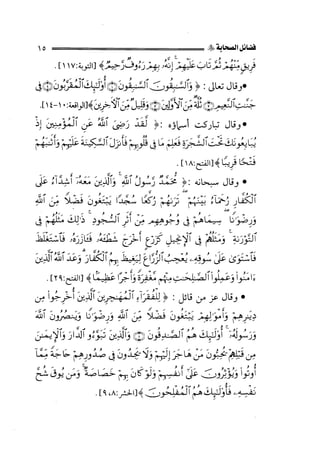 فضائل الصحابة ﷺ ١٥
فَرِيقٍ مِّنْهُمْ ثُمَّ تَابَ عَلَيْهِمْ ۚ إِنَّهُ بِهِمْ رَءُوفٌ رَّحِيمٌ ﴾ [التوبة:١١٧].
• وقال تعالى : ﴿ وَالسَّابِقُونَ السَّابِقُونَ ۝ أُولَٰئِكَ الْمُقَرَّبُونَ ۝ فِي
جَنَّاتِ النَّعِيمِ ۝ ثُلَّةٌ مِّنَ الْأَوَّلِينَ ۝ وَقَلِيلٌ مِّنَ الْآخِرِينَ ﴾ [الواقعة:١٠-١٤].
• وقال تباركت أسماؤه : ﴿ لَّقَدْ رَضِيَ اللَّهُ عَنِ الْمُؤْمِنِينَ إِذْ
يُبَايِعُونَكَ تَحْتَ الشَّجَرَةِ فَعَلِمَ مَا فِي قُلُوبِهِمْ فَأَنزَلَ السَّكِينَةَ عَلَيْهِمْ وَأَثَابَهُمْ
فَتْحًا قَرِيبًا ﴾ [الفتح:١٨].
• وقال سبحانه : ﴿ مُّحَمَّدٌ رَّسُولُ اللَّهِ ۚ وَالَّذِينَ مَعَهُ أَشِدَّاءُ عَلَى
الْكُفَّارِ رُحَمَاءُ بَيْنَهُمْ ۖ تَرَاهُمْ رُكَّعًا سُجَّدًا يَبْتَغُونَ فَضْلًا مِّنَ اللَّهِ
وَرِضْوَانًا ۖ سِيمَاهُمْ فِي وُجُوهِهِم مِّنْ أَثَرِ السُّجُودِ ۚ ذَٰلِكَ مَثَلُهُمْ فِي
التَّوْرَاةِ ۚ وَمَثَلُهُمْ فِي الْإِنجِيلِ كَزَرْعٍ أَخْرَجَ شَطْأَهُ فَآزَرَهُ فَاسْتَغْلَظَ
فَاسْتَوَىٰ عَلَىٰ سُوقِهِ يُعْجِبُ الزُّرَّاعَ لِيَغِيظَ بِهِمُ الْكُفَّارَ ۗ وَعَدَ اللَّهُ الَّذِينَ
ءَامَنُوا وَعَمِلُوا الصَّالِحَاتِ مِنْهُم مَّغْفِرَةً وَأَجْرًا عَظِيمًا ﴾ [الفتح:٢٩].
• وقال عز من قائل : ﴿ لِلْفُقَرَاءِ الْمُهَاجِرِينَ الَّذِينَ أُخْرِجُوا مِن
دِيَارِهِمْ وَأَمْوَالِهِمْ يَبْتَغُونَ فَضْلًا مِّنَ اللَّهِ وَرِضْوَانًا وَيَنصُرُونَ اللَّهَ
وَرَسُولَهُ ۚ أُولَٰئِكَ هُمُ الصَّادِقُونَ ۝ وَالَّذِينَ تَبَوَّءُو الدَّارَ وَالْإِيمَانَ
مِن قَبْلِهِمْ يُحِبُّونَ مَنْ هَاجَرَ إِلَيْهِمْ وَلَا يَجِدُونَ فِي صُدُورِهِمْ حَاجَةً مِّمَّا
أُوتُوا وَيُؤْثِرُونَ عَلَىٰ أَنفُسِهِمْ وَلَوْ كَانَ بِهِمْ خَصَاصَةٌ ۚ وَمَن يُوقَ شُحَّ
نَفْسِهِ فَأُولَٰئِكَ هُمُ الْمُفْلِحُونَ ﴾ [الحشر:٨، ٩].